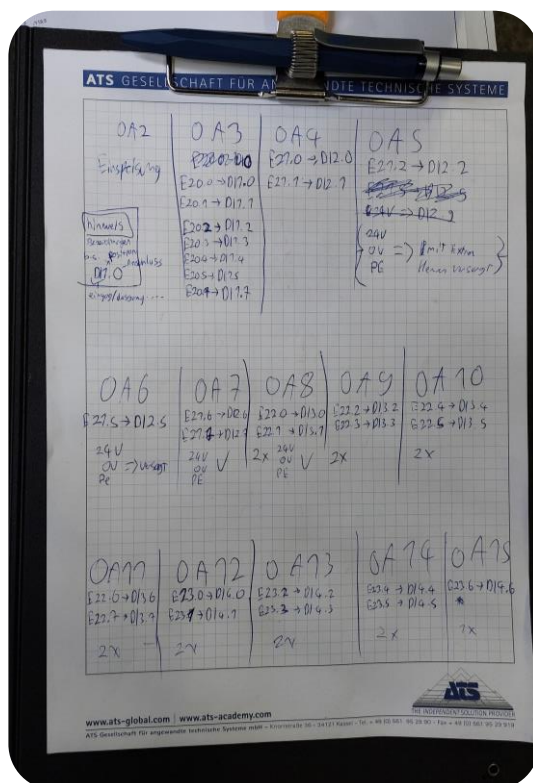 ATS GESELLSCHAFT FÜR ANGEWANDTE TECHNISCHE SYSTEME
OA2
Einspeisung
Hinweis
D17.0
OA3
E20.0 → D17.0
E20.1 → D17.1
E20.2 → D17.2
E20.3 → D17.3
E20.4 → D17.4
E20.5 → D17.5
→ D17.7
OA4
E21.0 → D12.0
E21.1 → D12.1
OA5
E21.2 → D12.2
24V
0V =>
PE
versorgt
OA6
E21.5 → D12.5
24V
0V => versorgt
PE
OA7
E21.6 →
24V
0V
PE
OA8
E22.0 → D13.0
E22.1 → D13.1
2x 24V
0V
PE
OA9
E22.2 → D13.2
E22.3 → D13.3
2x
OA10
E22.4 → D13.4
E22.5 → D13.5
2x
OA11
E22.6 → D13.6
E22.7 → D13.7
2x
OA12
E23.0 → D14.0
E23.1 → D14.1
2x
OA13
E23.2 → D14.2
E23.3 → D14.3
2x
OA14
E23.4 → D14.4
E23.5 → D14.5
2x
OA15
E23.6 → D14.6
1x
ATS
THE INDEPENDENT SOLUTION PROVIDER
www.ats-global.com | www.ats-academy.com
ATS Gesellschaft für angewandte technische Systeme mbH - 34121 Kassel - Tel.